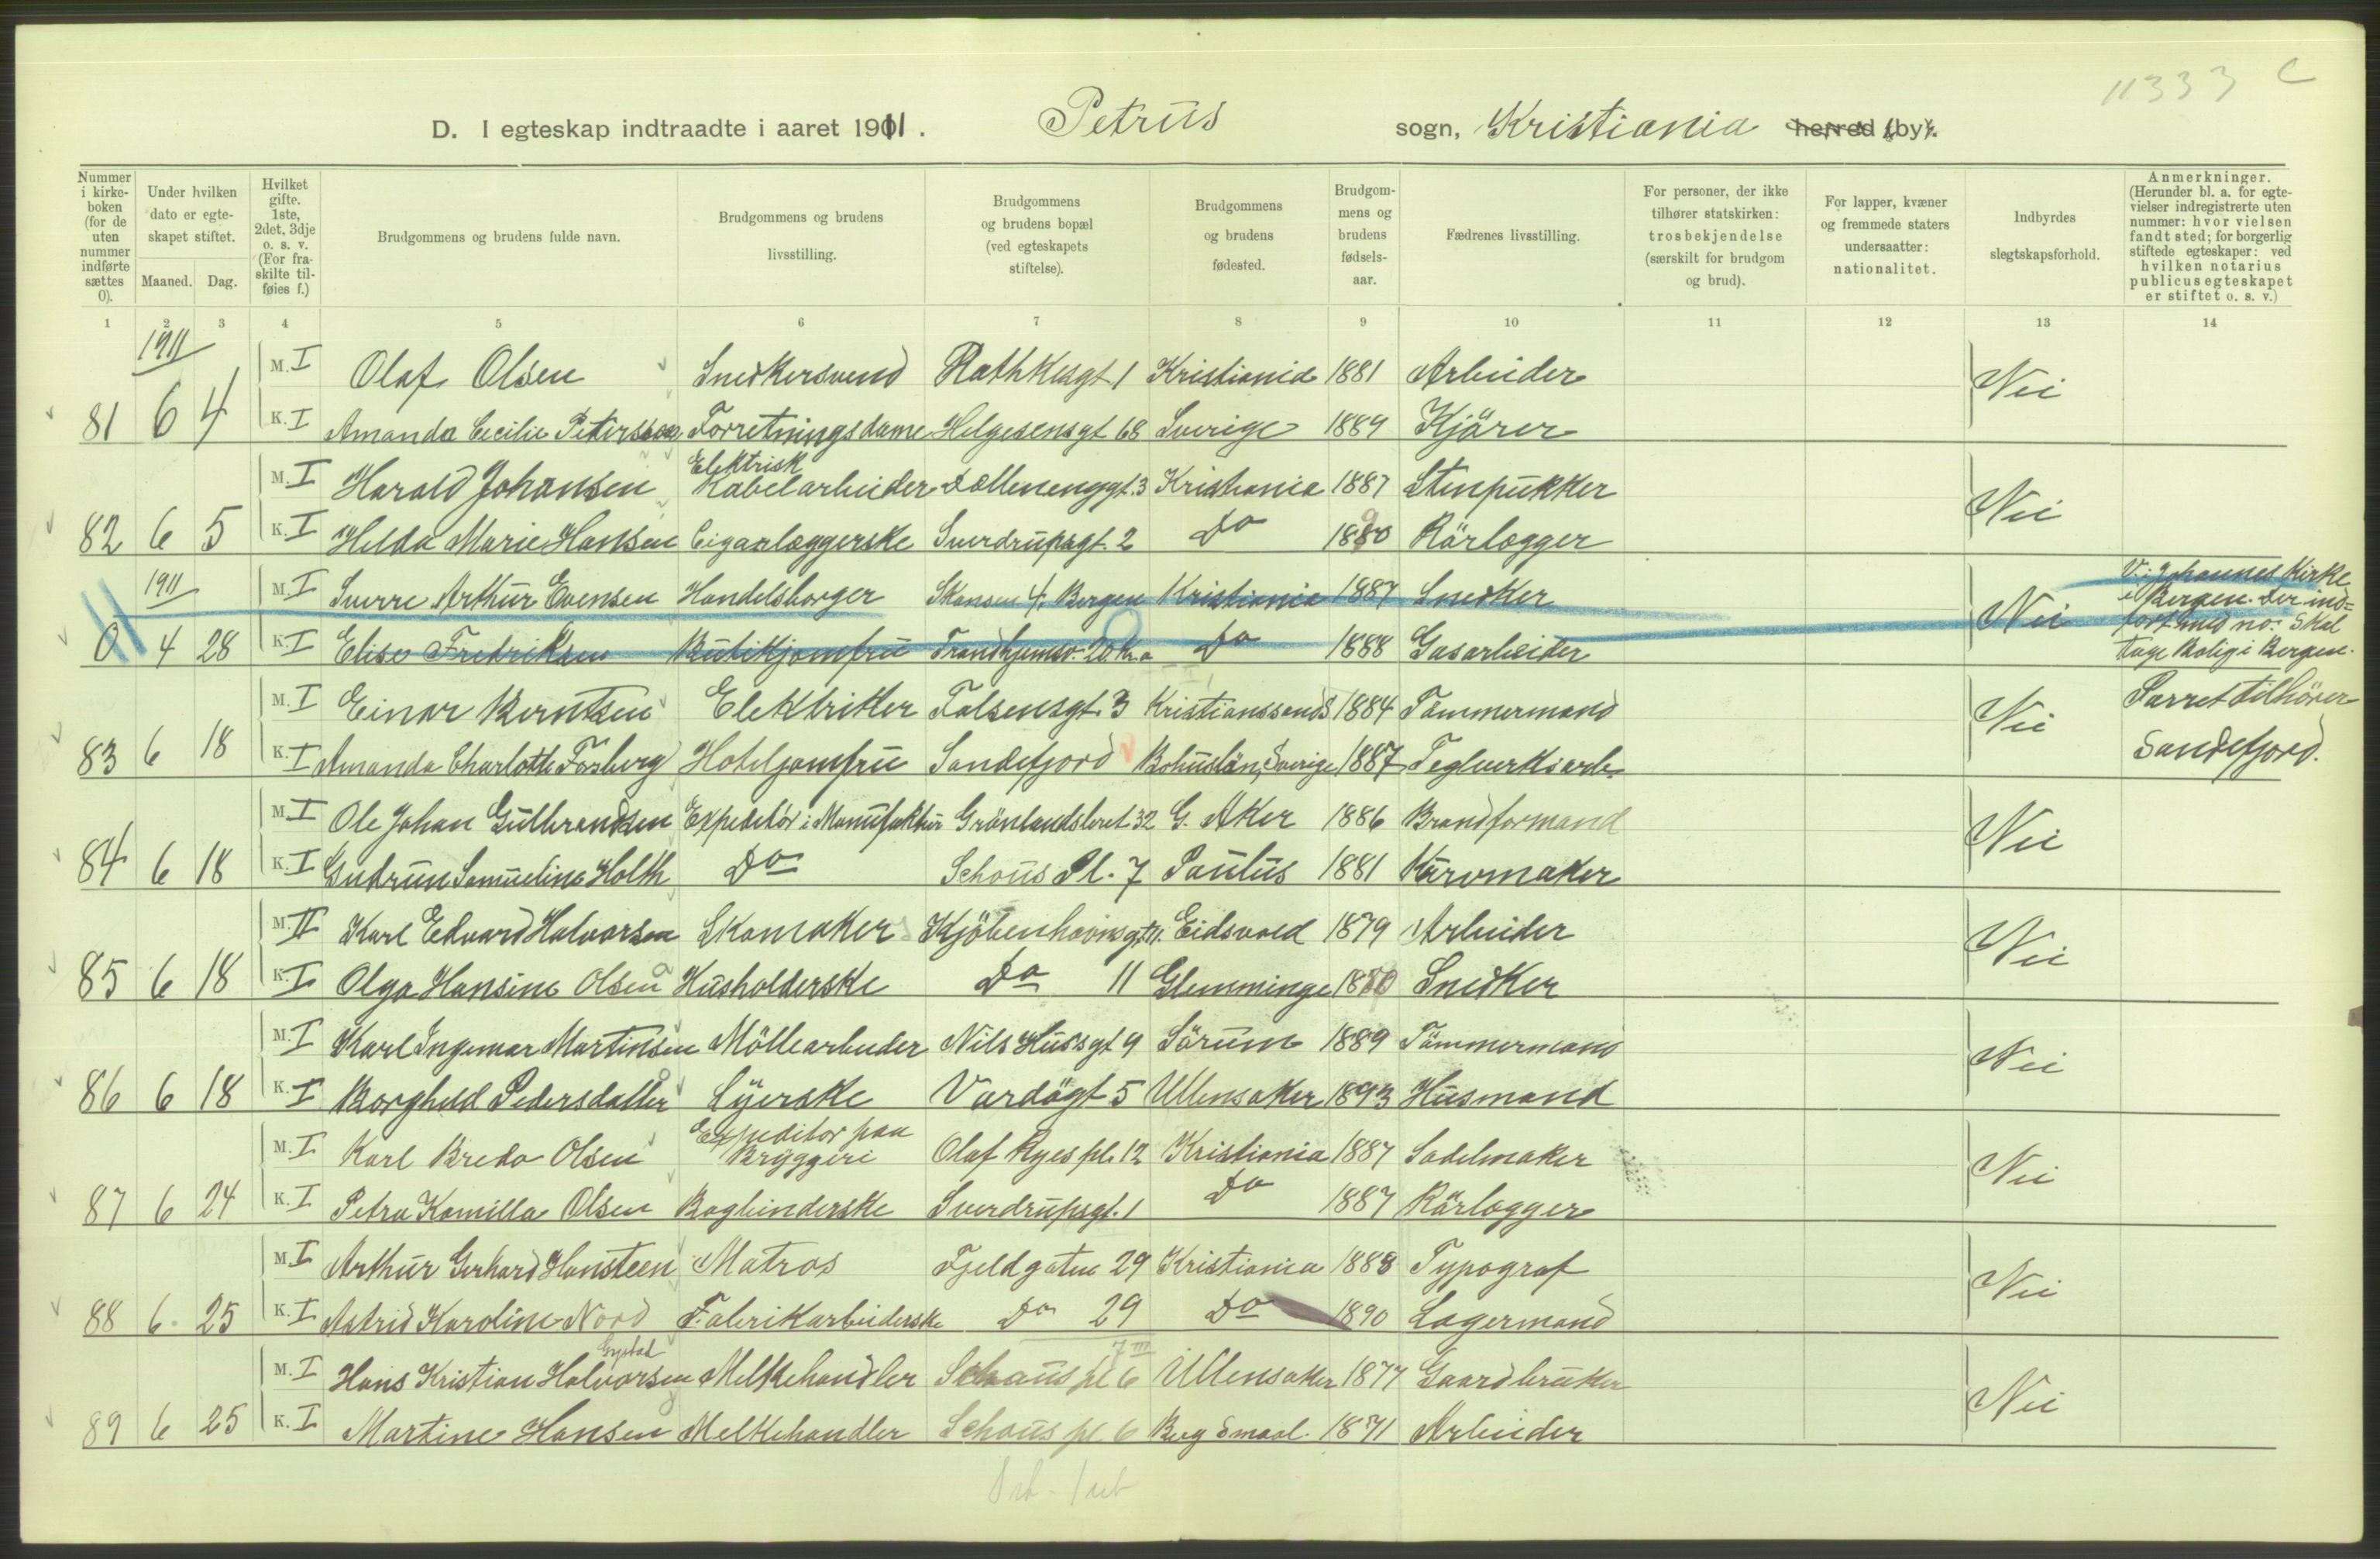 11333 C
D. I egteskap indtraadte i aaret 1911. Petrus sogn, Kristiania herred (by).
Nummer i kirkeboken (for de uten nummer indførte sættes 0). Under hvilken dato er egteskapet stiftet. Maaned. Dag. Hvilket gifte. 1ste, 2det, 3dje o. s. v. (For fraskilte tilføies f.) Brudgommens og brudens fulde navn. Brudgommens og brudens livsstilling. Brudgommens og brudens bopæl (ved egteskapets stiftelse). Brudgommens og brudens fødested. Brudgommens og brudens fødselsaar. Fædrenes livsstilling. For personer, der ikke tilhører statskirken: trosbekjendelse (særskilt for brudgom og brud). For lapper, kvæner og fremmede staters undersaatter: nationalitet. Indbyrdes slegtskapsforhold. Anmerkninger. (Herunder bl. a. for egtevielser indregistrerte uten nummer: hvor vielsen fandt sted; for borgerlig stiftede egteskaper: ved hvilken notarius publicus egteskapet er stiftet o. s. v.)
1 2 3 4 5 6 7 8 9 10 11 12 13 14
1911
M. I Olaf Olsen Snedkersvend Rathkesgt 1 Kristiania 1881 Arbeider Nei
81 6 4 K. I Amanda Cecilie Petersson Forretningsdame Helgesensgt 68 Sverige 1889 Kjörer
M. I Harald Johansen Elektrisk Kabelarbeider Dællenenggt. 3 Kristiania 1887 Stenpukker Nei
82 6 5 K. I Hilda Marie Hansen Cigarlæggerske Sverdrupsgt. 2 Do 1880 Rörlægger
1911 M. I Sverre Arthur Evensen Handelsborger Skansen 4. Bergen Kristiania 1887 Snedker Nei V. i Johannes Kirke i Bergen. Der ind=ført med no: Skal tage Bolig i Bergen.
0 4 28 K. I Elise Fredriksen Butikjomfru Trondhjemsv. 20 Kr.a Do 1888 Gasarbeider
M. I Einar Berntsen Elektriker Falsensgt. 3 Kristianssands 1884 Tömmermand Nei Parret tilhörer Sandefjord.
83 6 18 K. I Amanda Charlotte Forsberg Hoteljomfru Sandefjord Bohuslän, Sverige 1887 Teglverksarb.
M. I Ole Johan Gulbrandsen Expeditør i Manufaktur Grönlandsleret 32 G. Aker 1886 Brandformand Nei
84 6 18 K. I Gudrun Samueline Holth Do Schous Pl. 7 Paulus 1881 Kurvmaker
M. II Karl Edvard Halvorsen Skomaker Kjöbenhavnsgt 11. Eidsvold 1879 Arbeider Nei
85 6 18 K. I Olga Hansine Olsen Husholderske Do 11 Glemminge Snedker
M. I Karl Ingemar Martinsen Möllearbeider Nils Hussgt 9 Sörum 1889 Tömmermand Nei
86 6 18 K. I Borghild Pedersdatter Syerske Vardögt 5 Ullensaker 1893 Husmand
M. I Karl Bredo Olsen Expeditør paa Bryggeri Olaf Ryes pl. 12 Kristiania 1887 Sadelmaker Nei
87 6 24 K. I Petra Kamilla Olsen Bogbinderske Sverdrupsgt. 1 Do 1887 Rörlægger
M. I Arthur Gerhard Hansteen Matros Fjeldgaten 29 Kristiania 1888 Typograf Nei
88 6 25 K. I Astrid Karoline Nord Fabrikarbeiderske Do 29 Do 1890 Lagermand
M. I Hans Kristian Halvorsen Gystad Melkehandler Schaus pl 6 7 III Ullensaker 1877 Gaardbruker Nei
89 6 25 K. I Martine Hansen Melkehandler Schous pl 6 Berg Smaal. 1871 Arbeider